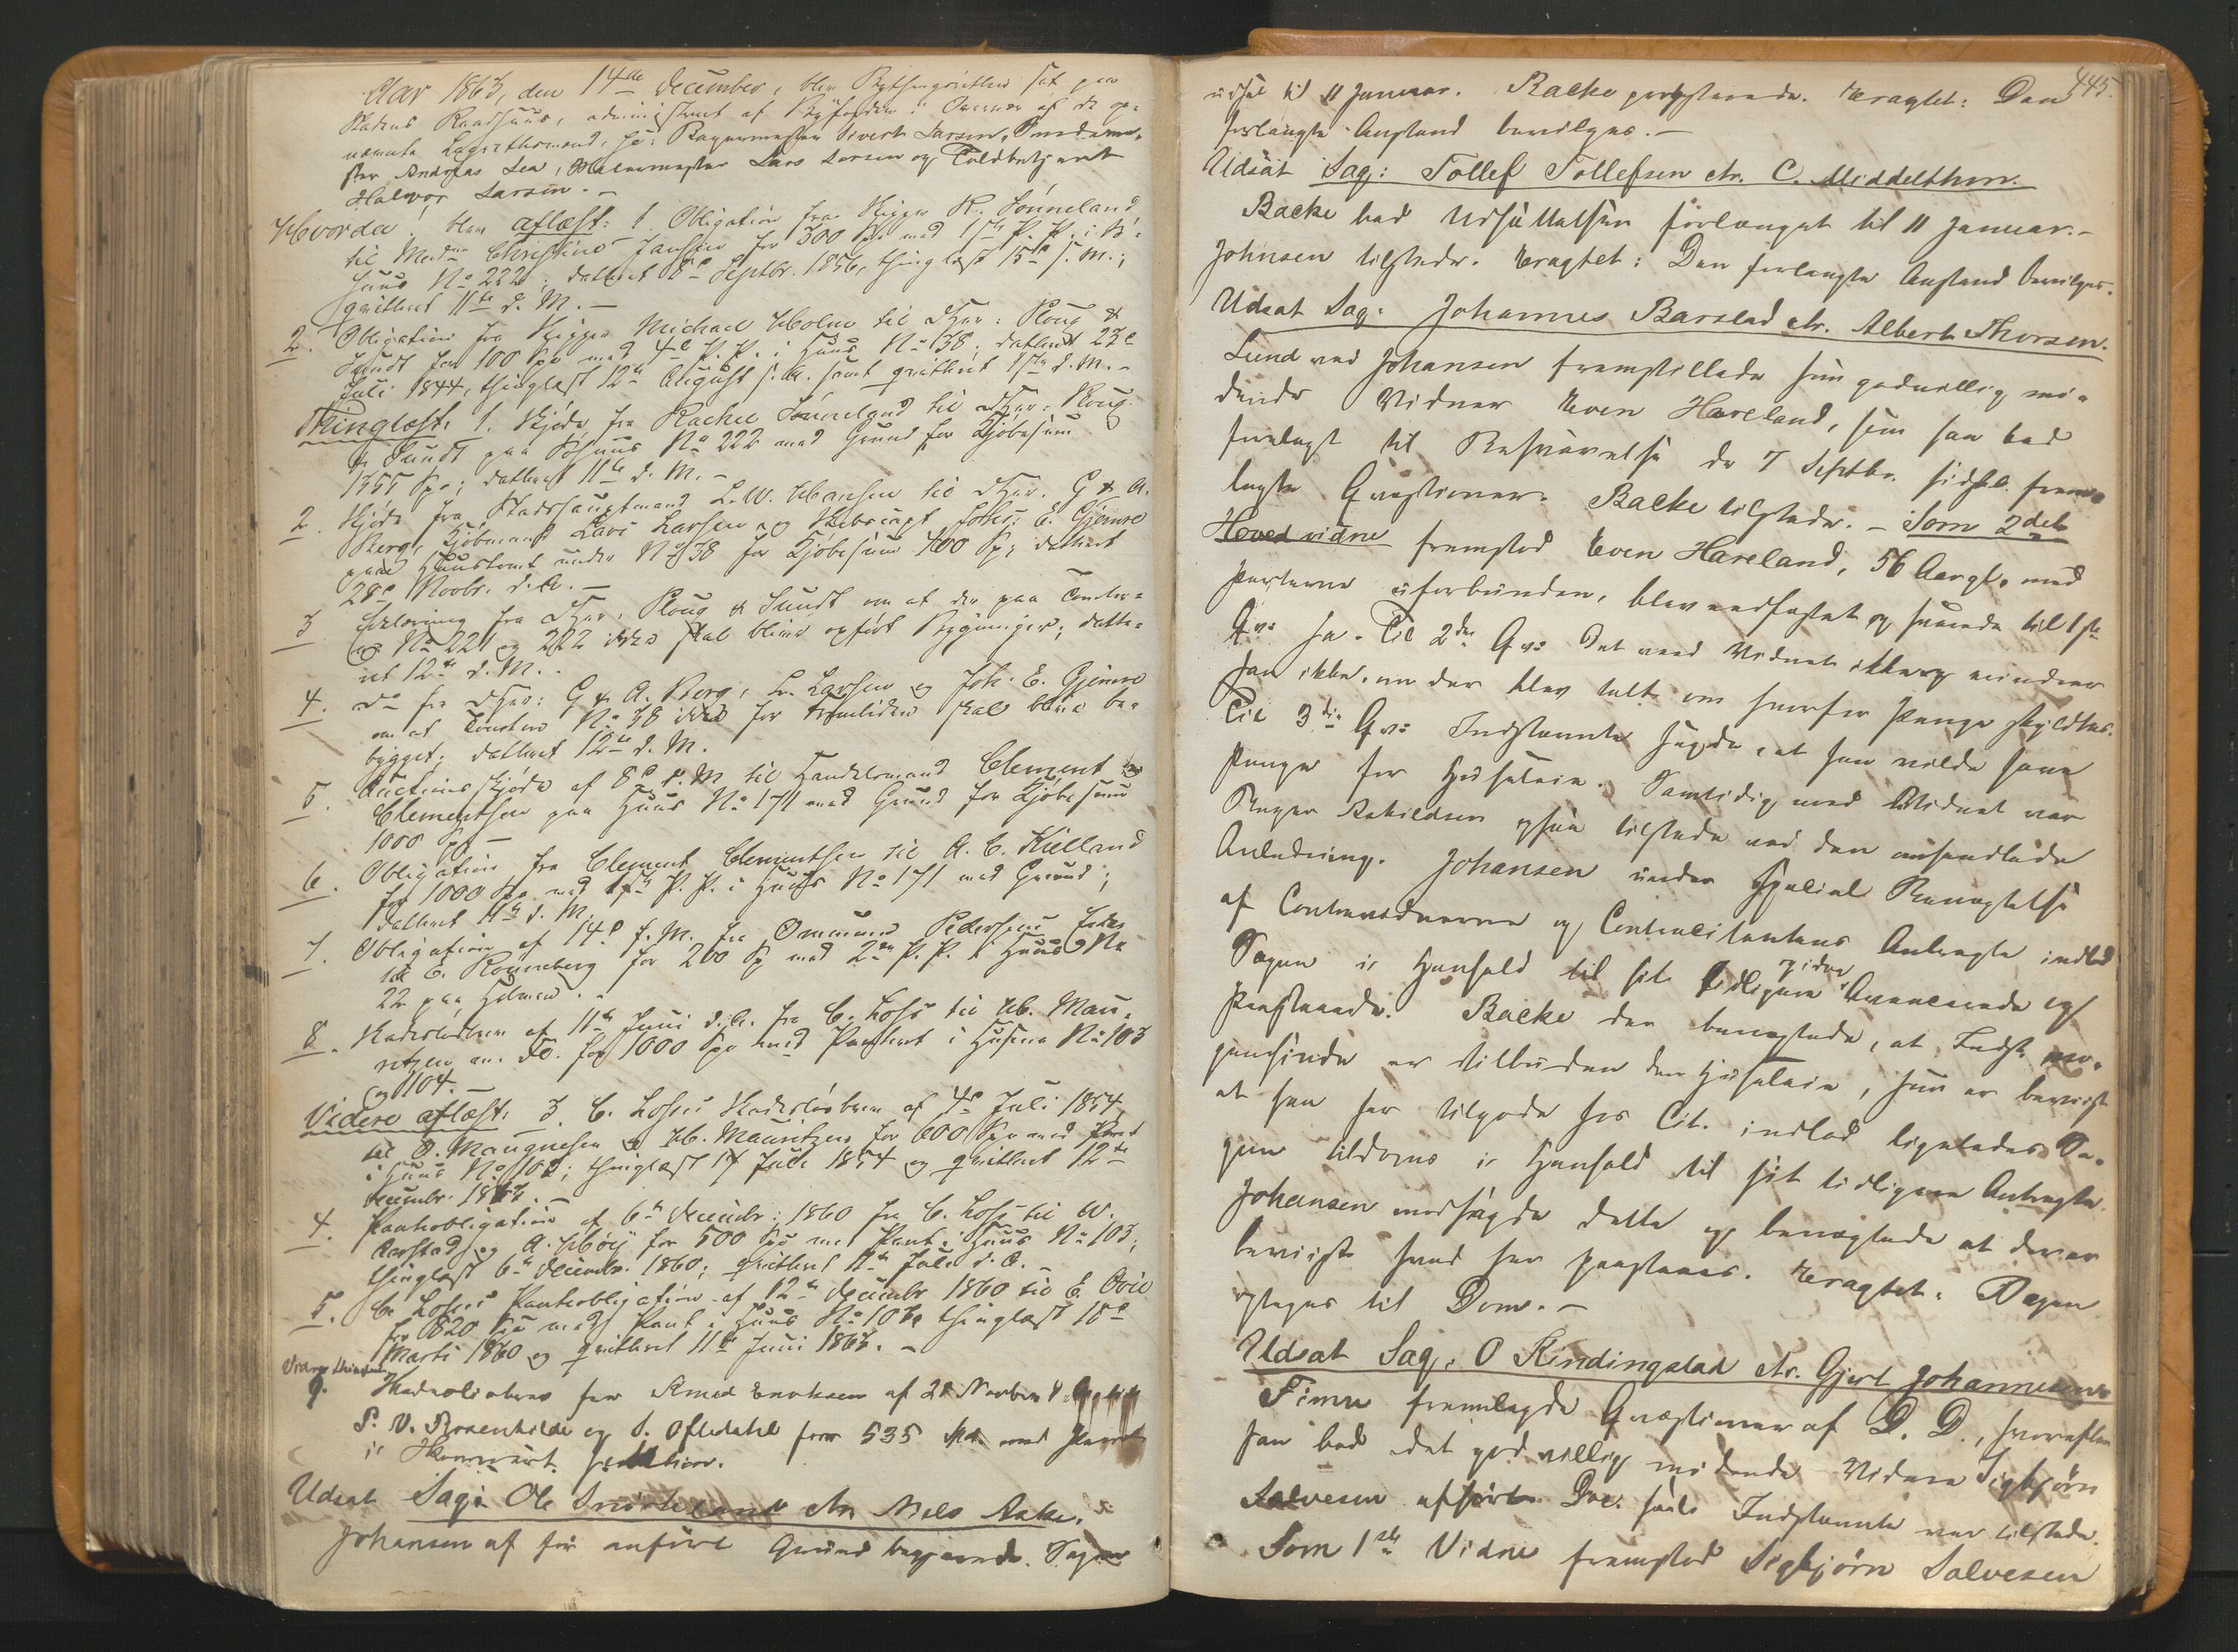 Aar 1863, den 14de December, blev Bythingsretten sat paa
Stadens Raadhuus, administreret af Byfogden i Overvær af de op-
nævnte Laugrettesmænd, So: Bagermester Sivert Larsen, Smedeme-
ster Andreas Lea, Malermester Lars Larsen og Toldbetjent
Halvor Larsen. -
Hvorda blev aflæst: 1. Obligation fra Skipper R. Sønneland
til Madme Christine Jansen for 300 Spd. med 1ste P. P. i Sø-
huus No 222; dateret 8de Septbr. 1856, thinglæst 15de s. M.;
qvitteret 11te d. M. -
2. Obligation fra Skipper Michael Holm til DHrr. Ploug &
Sundt for 100 Spd med 4de P. P. i Huus No 38; dateret 23de
Juli 1844, thinglæst 12te August s. A. samt qvitteret 1ste d. M. -
Thinglæst: 1. Skjøde fra Rachel Sønneland til DHrr. Ploug
& Sundt paa Søhuus No 222 med Grund for Kjøbesum
1355 Spd; dateret 11te d. M. -
2. Skjøde fra Stadshauptmand L. W. Hansen til DHrr. G & A.
Berg, Kjøbmand Lars Larsen og Skibscapt Johs: E. Gjemre
paa Huustomt under No 38 for Kjøbesum 400 Spd; dateret
28de Novbr. d. A. -
3 Erklæring fra DHrr. Ploug & Sundt om at der paa Tomter-
ne No 221 og 222 ikke skal blive opført Bygninger; date-
ret 12te d. M. -
4. Do fra DHrr: G & A. Berg, Lr. Larsen og Joh. E. Gjemre
om at Tomten No 38 ikke for Fremtiden skal blive be-
bygget; dateret 12te d. M.
5. Auctionsskjøde af 8de d. M til Handelsmand Clement
Clementsen paa Huus No 171 med Grund for Kjøbesum
1000 Spd -
6. Obligation fra Clement Clementsen til A. C. Kielland
for 1000 Spd med 1ste P. P. i Huus No 171 med Grund;
dateret 11te d. M.
7. Obligation af 14de d. M. fra Ommund Pedersens Enke
til E. Rønneberg for 200 Sp med 2den P. P. i Huus No
22 paa Holmen. -
8. Skadesløsbrev af 11te Juni d. A. fra C. Lohs til H. Mau-
ritzen m. Fl. for 1000 Spd med Panteret i Husene No 103
og 104. -
Videre aflæst: 3. C. Lohses Skadesløsbrev af 4de Juli 1854
til O. Maugnesen & H. Mauritzen for 600 Spd med Pant
i Huus No 103; thinglæst 17 Juli 1854 og qvitteret 12te
Decembr. 1863. -
4. Pantobligation af 6te Decembr: 1860 fra C. Lohs til W.
Aarstad og A. Høiy for 500 Spd med Pant i Huus No 103;
thinglæst 6te Decembr. 1860; qvitteret 11te Juli d. A. -
5. C. Lohses Pantobligation af 12te Decembr 1860 til E. Ovie
for 820 Spd med Pant i Huus No 103 thinglæst 18de
Marts 1860 og qvitteret 11te Juni 1863. -
Videre thinglæst
9. Skadesløsbrev fra Amed Enoksen af 21 Novbr til
P. V. Rosenkilde og S. Oftedahl for 535 Spd. med Pant
i
Udsat Sag: Ole Snørteland ctr. Niels Aske.
Johansen af før anført Grund begjærede Sagen
445.
udsat til 11 Januar. Backe protesterede. Eragtet: Den
forlangte Anstand bevilges. -
Udsat Sag: Tollef Tollefsen ctr. C. Middelthon.
Backe bad Udsættelsen forlænget til 11 Januar. -
Johnsen tilstede. Eragtet: Den forlangte Anstand bevilges.
Udsat Sag: Johannes Barstad ctr. Albert Thorsen.
Lund ved Johansen fremstillede som godvillig mø-
dende Vidne Even Hareland, som han bad
forelagt til Besvarelse de 7 Septbr. sidstl. frem-
lagte Qvæstioner. Backe tilstede. - Som 2det
Hovedvidne fremstod Even Hareland, 56 Aar gl. med
Parterne uforbunden, blev eedfæstet og svarede til 1ste
Qv: Ja. Til 2det Qv: Det veed Vidnet ikke og erindrer
han ikke, om der blev talt om hvorfor Penge skyldtes.
Til 3die Qv: Indstævnte sagde, at han vilde have
Penge for Huusleie. Samtidig med Vidnet var
Roger Eskildsen ogsaa tilstede ved den omhandlede
Anledning. Johansen under speciel Benægtelse
af Contraordnerne og Contracitantens Anbragte indlod
Sagen i Henhold til sit tidligere Avancerede og
Paastaaede. Backe der benægtede, at Indst. no-
gensinde er tilbuden den Huusleie, som er beviist
at han har tilgode hos Cit. indlod ligeledes Sa-
gen tildoms i Henhold til sit tidligere Anbragte.
Johansen modsagde dette og benægtede at der er
beviist hvad her paastaaes. Eragtet: Sagen
optages til Dom. -
Udsat Sag: O Rindingstad ctr. Gjert Johannesen
Finne fremlagde Qvæstioner af D. D., hvorefter
han bad det godvillig mødende Vidne Sigbjørn
Salvesen afhørt. Proc. for Indstævnte var tilstede.
Som 1ste Vidne fremstod Sigbjørn Salvesen